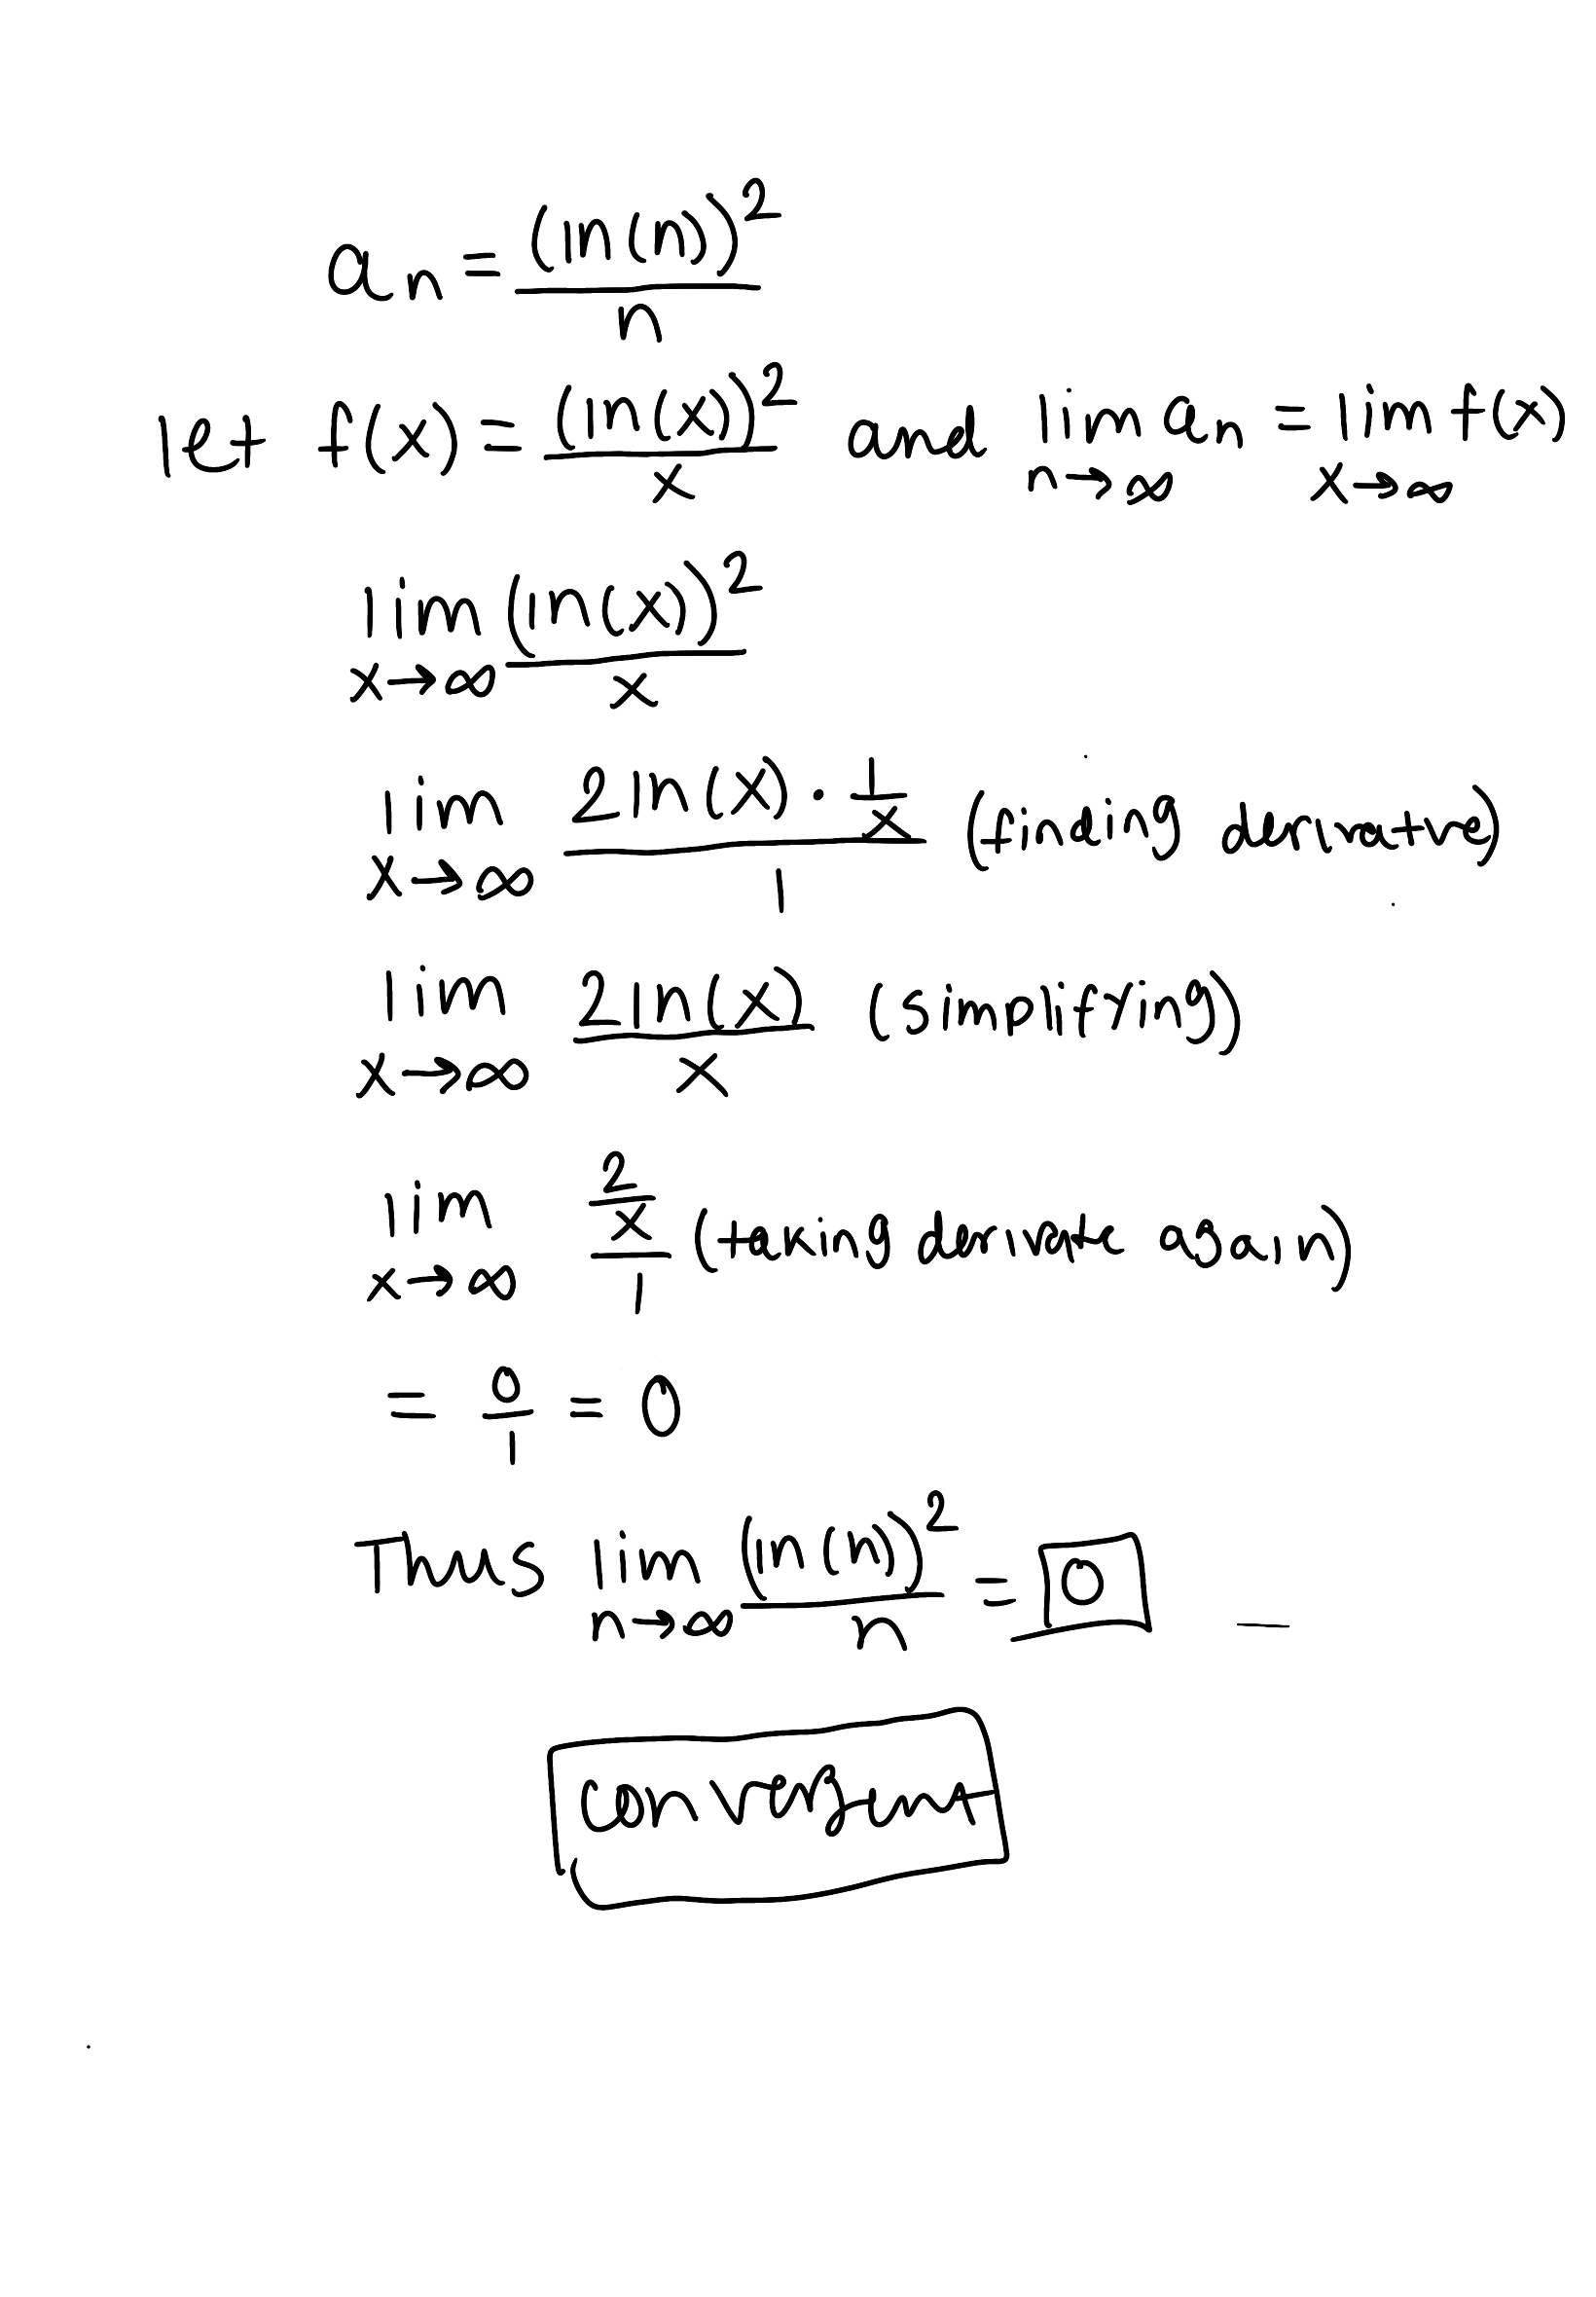 aₙ = (ln(n))² / n
let f(x) = (ln(x))² / x and lim n→∞ aₙ = lim x→∞ f(x)
lim x→∞ (ln(x))² / x
lim x→∞ (2ln(x) · 1/x) / 1 (finding derivative)
lim x→∞ 2ln(x) / x (simplifying)
lim x→∞ (2/x) / 1 (taking derivate again)
= 0/1 = 0
Thus lim n→∞ (ln(n))² / n = 0
convergent